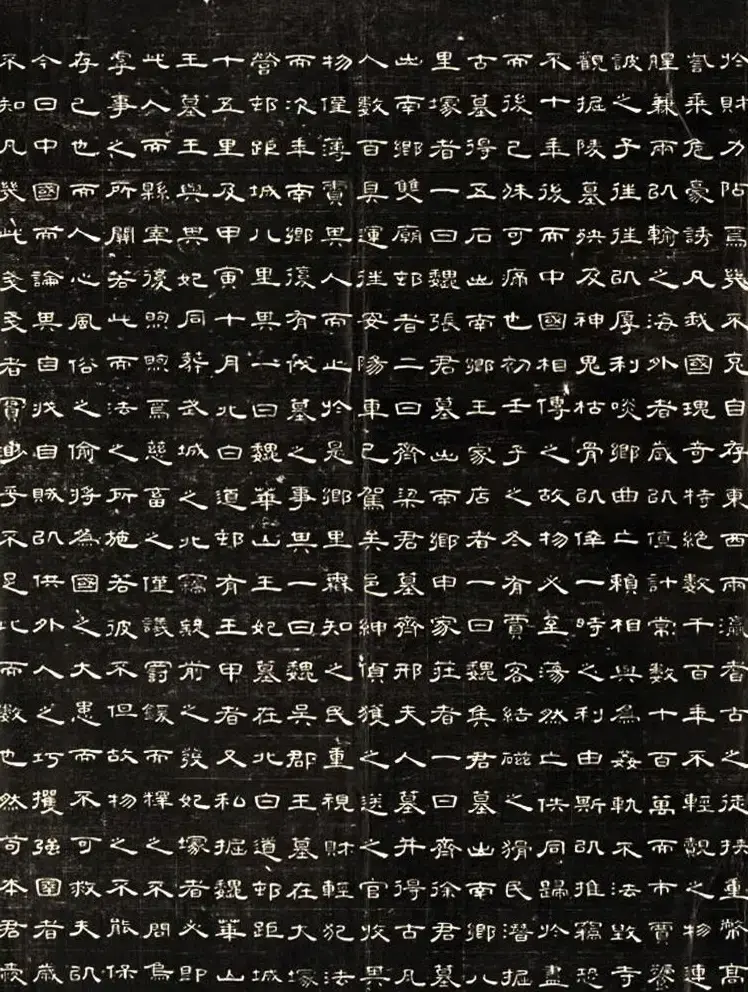 於財力阽焉幾不克自存東西兩瀛者古之徒挾重幣高
乘危豪誘凡我國瑰奇特絕數千百年不輕覯之物連
腥兼兩㠯輸之海外者歲㠯值計常數十百萬而市賈饕
詖之子往往㠯厚利啖鄉曲亡賴相與為姦軌不法戕寺
觀掘陵墓殃及神鬼枯骨㠯倖一時之利由斯㠯推竊恐
不十年後而中國相傳之故物必至蕩然亡供同歸於盡
而後已殊可痛也初壬子之冬有賈客結磁之猾民潛掘
古墓得五石出南鄉王家店者一曰魏集君墓出南鄉八
里塚者一曰魏張君墓出南鄉申家莊者一曰齊徐君墓
出南鄉雙廟邨者二曰齊梁君墓齊邢夫人墓并得古凡
人數百具運往安陽車已駕矣邑紳偵獲之送之官收其
物僅薄責其人而止於是鄉里森知之民重視財輕犯法
而次年南鄉復有伐墓之事其一曰魏吳郡王墓在大塚
營邨距城八里其一曰魏華山王妃墓在北白道邨距城
十五里及甲寅十月北白道邨有王甲者又私掘魏華山
王墓王與其妃同葬武城之北竊毀前之發妃塚者必即
此人而縣宰復煦煦焉慈畜之僅議罰鍰而釋之不問烏
辠事之所關若此而法之所施若彼不但故物之不能保
存已也而人心風俗之偷將為國之大患而不可救夫㠯
今日中國而論其自戕自賊㠯供外人之巧攫強圉者歲
不知凡幾此戔戔者實尠乎不足比而數也然苟本君